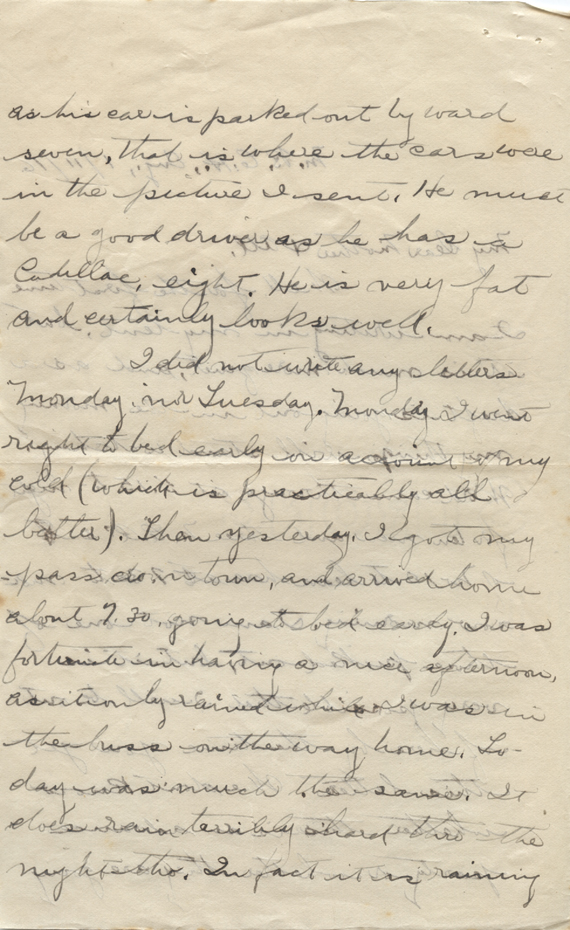 as his car is parked out by ward
seven, that is where the cars were
in the picture I sent. He must
be a good driver as he has a
Cadillac, eight. He is very fat
and certainly looks well.
I did not write any letters
Monday, nor Tuesday. Monday I went
right to bed early on account o my
cold (which is practicably all
better). Then yesterday, I got my
pass down town, and arrived home
about 7.30, going to bed early. I was
fortunate in having a nice afternoon,
as it only rained while I was in
the buss on the way home. To-
day was much the same. It
does rain terribly hard thru the
nights tho. In fact it is raining